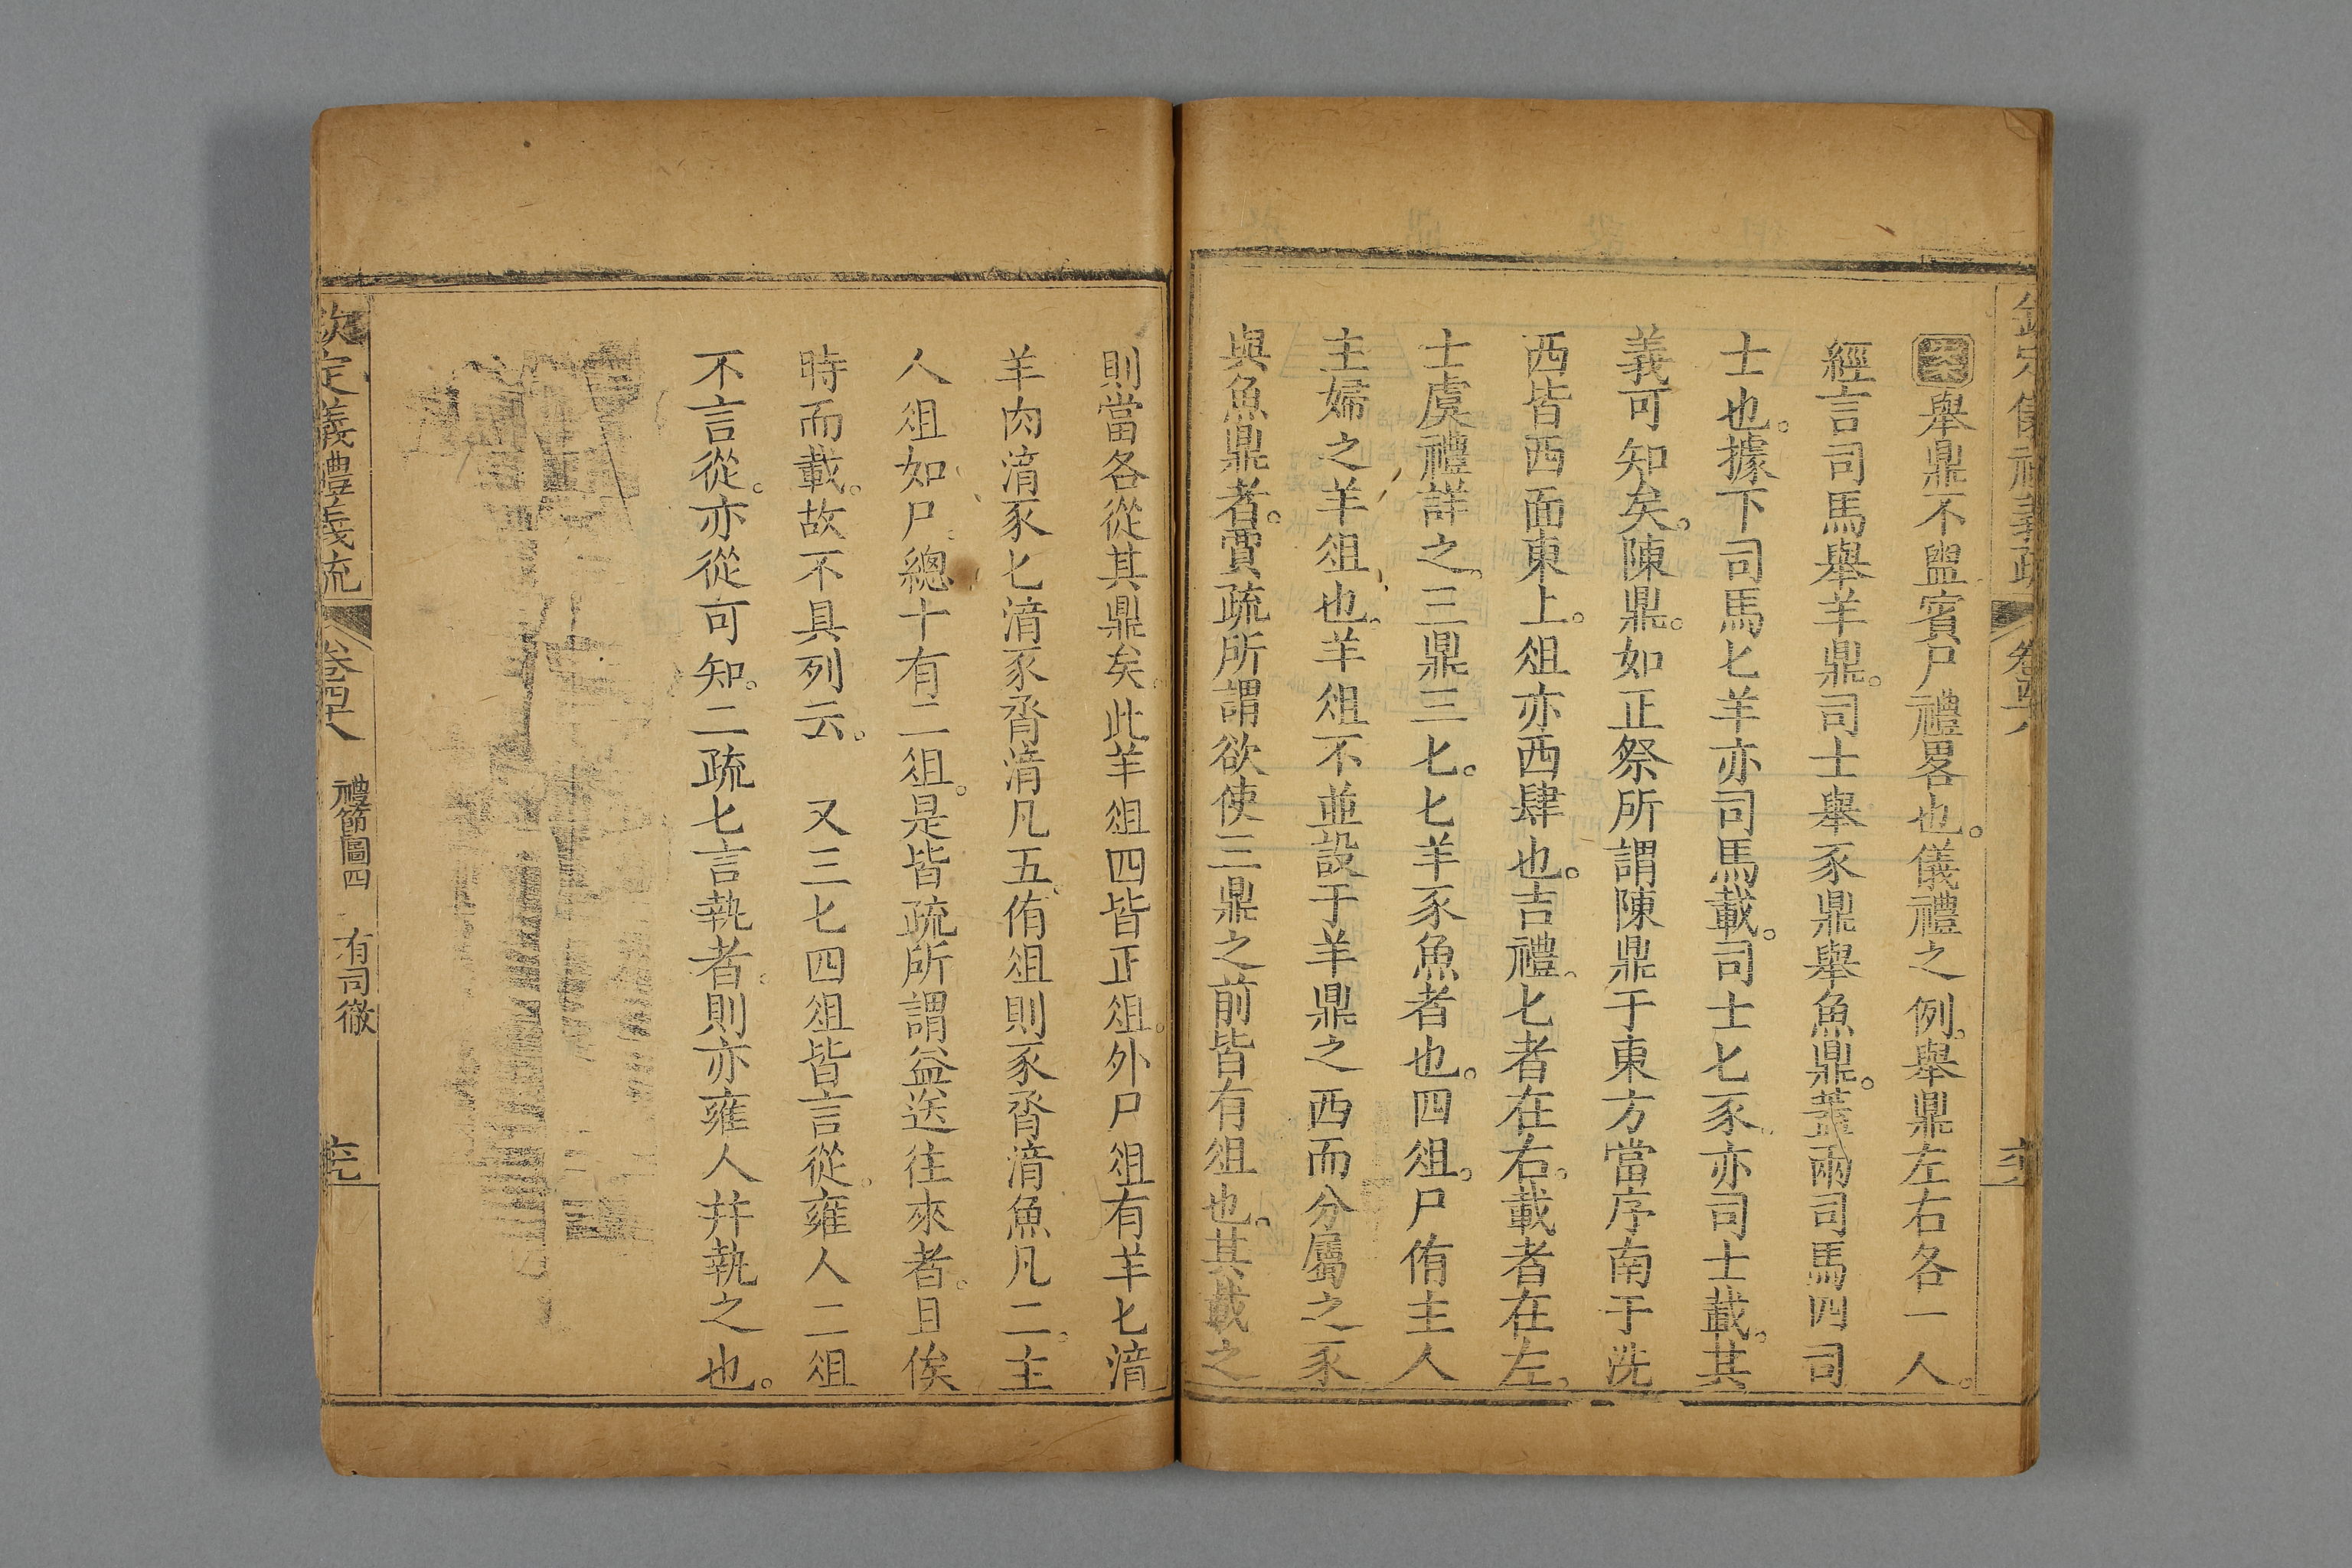 欽定儀禮義疏 卷四十八
舉鼎不盥賓尸禮畧也。儀禮之例。舉鼎左右各一人。
經言司馬舉羊鼎。司士舉豕鼎舉魚鼎。蓋兩司馬四司
士也。據下司馬匕羊亦司馬載。司士匕豕亦司士載。其
義可知矣。陳鼎。如正祭所謂陳鼎于東方當序南于洗
西皆西面東上。俎亦西肆也。吉禮。匕者在右。載者在左。
士虞禮詳之。三鼎三匕。匕羊豕魚者也。四俎。尸侑主人
主婦之羊俎也。羊俎不並設于羊鼎之西而分屬之豕
與魚鼎者。賈疏所謂欲使三鼎之前皆有俎也。其載之
則當各從其鼎矣。此羊俎四皆正俎。外尸俎有羊匕湆
羊肉湆豕匕湆豕脀湆凡五。侑俎則豕脀湆魚凡二。主
人俎如尸。總十有二俎。是皆疏所謂益送往來者。且俟
時而載。故不具列云。 又三匕四俎皆言從。雍人二俎
不言從。亦從可知。二疏匕言執者。則亦雍人并執之也。
欽定義禮義疏 卷四十八 禮節圖四 有司徹